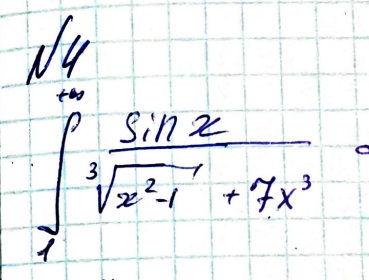 №4
+∞
∫ sin x
∛(x²-1) + 7x³
1